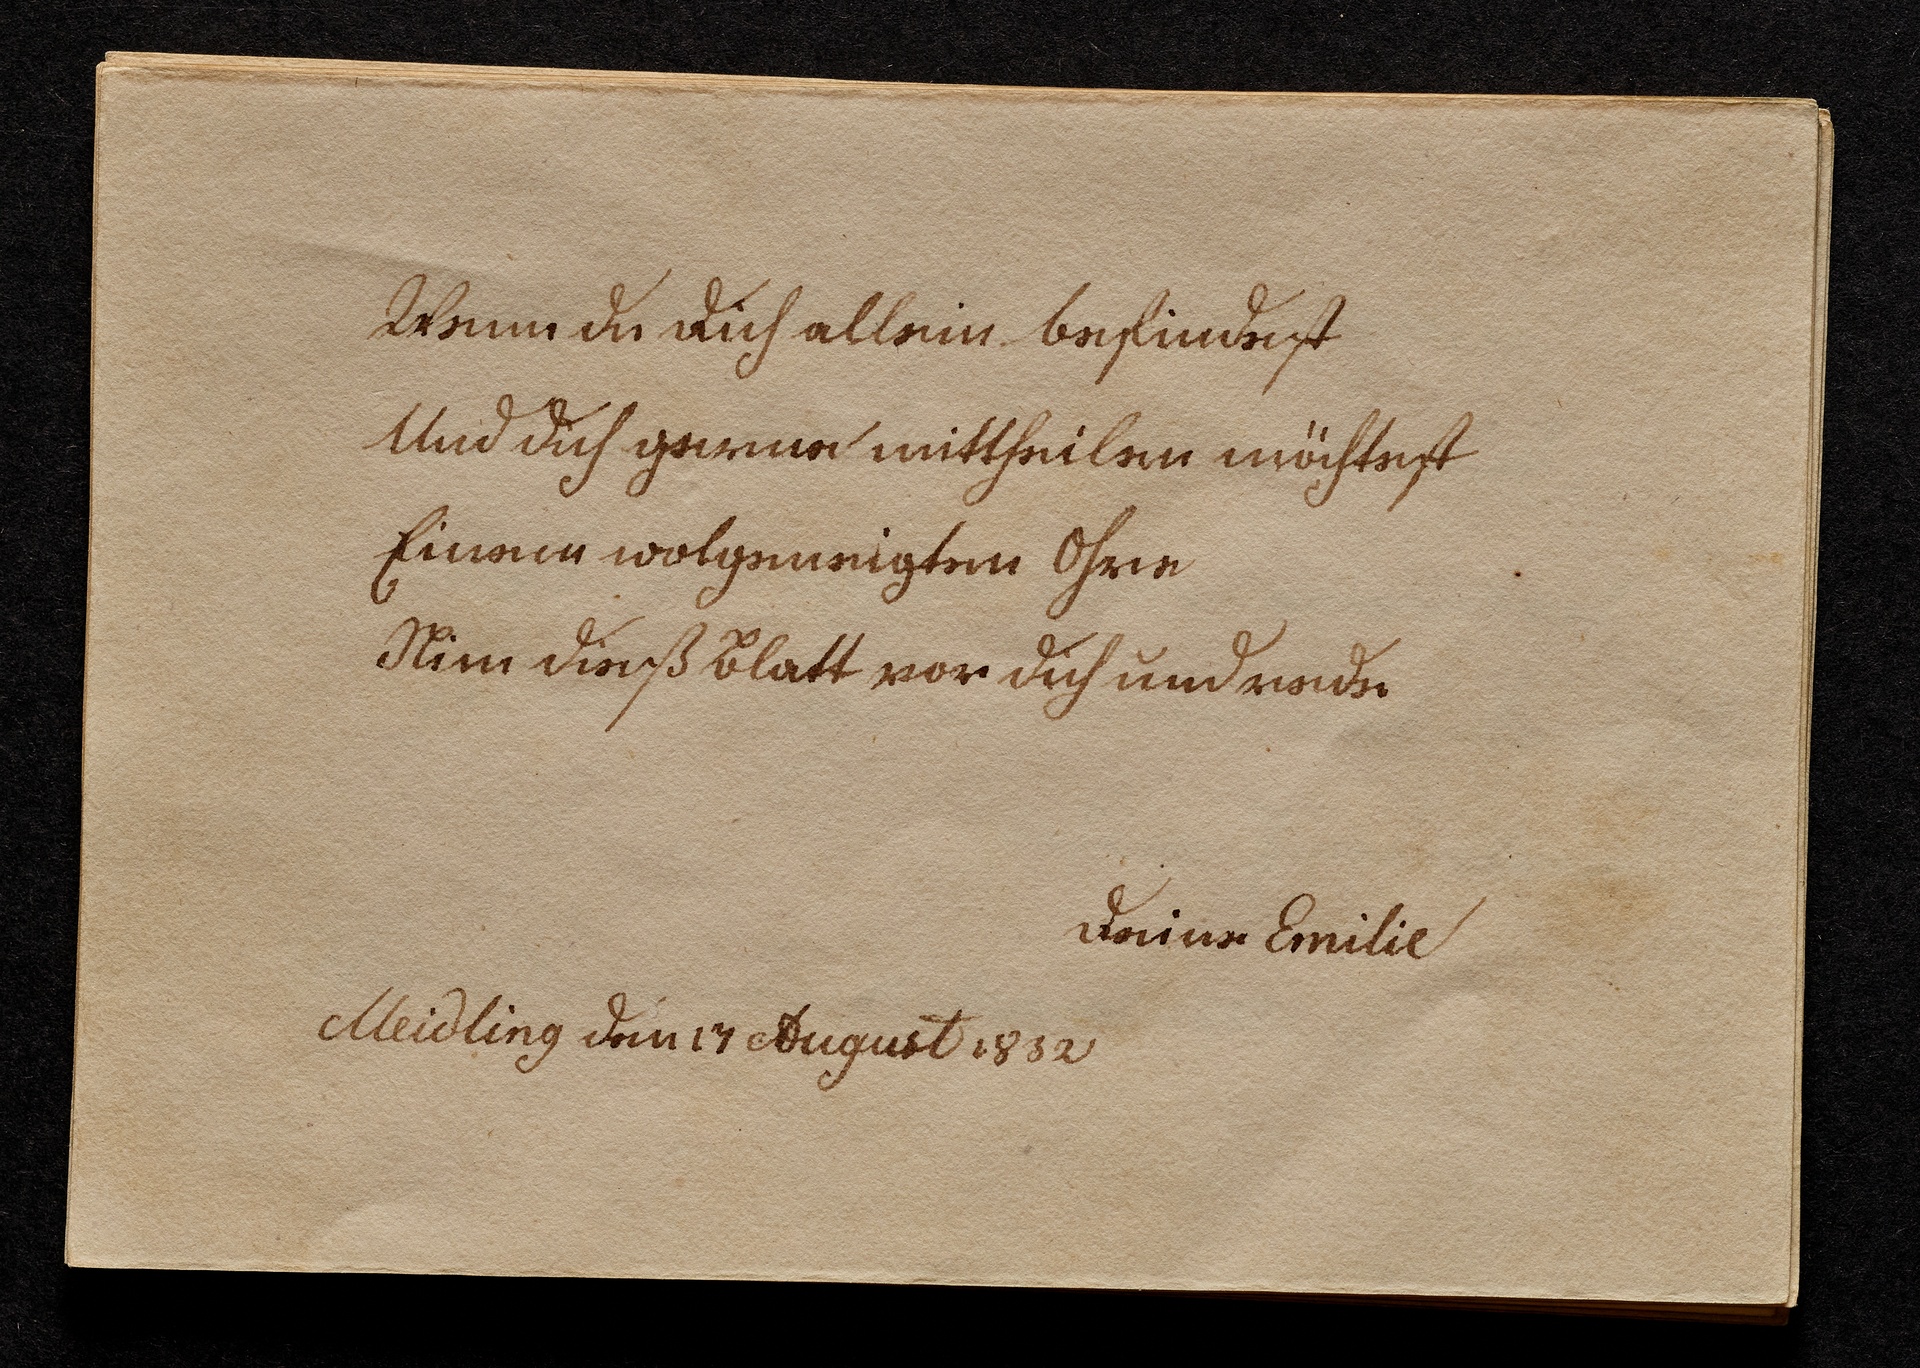 Wenn du dich allein befindest
Und dich gerne mittheilen möchtest
Einem wolgeneigten Ohre
Nim dieß Blatt vor dich und rede
Deine Emilie
Meidling den 17 August 1832